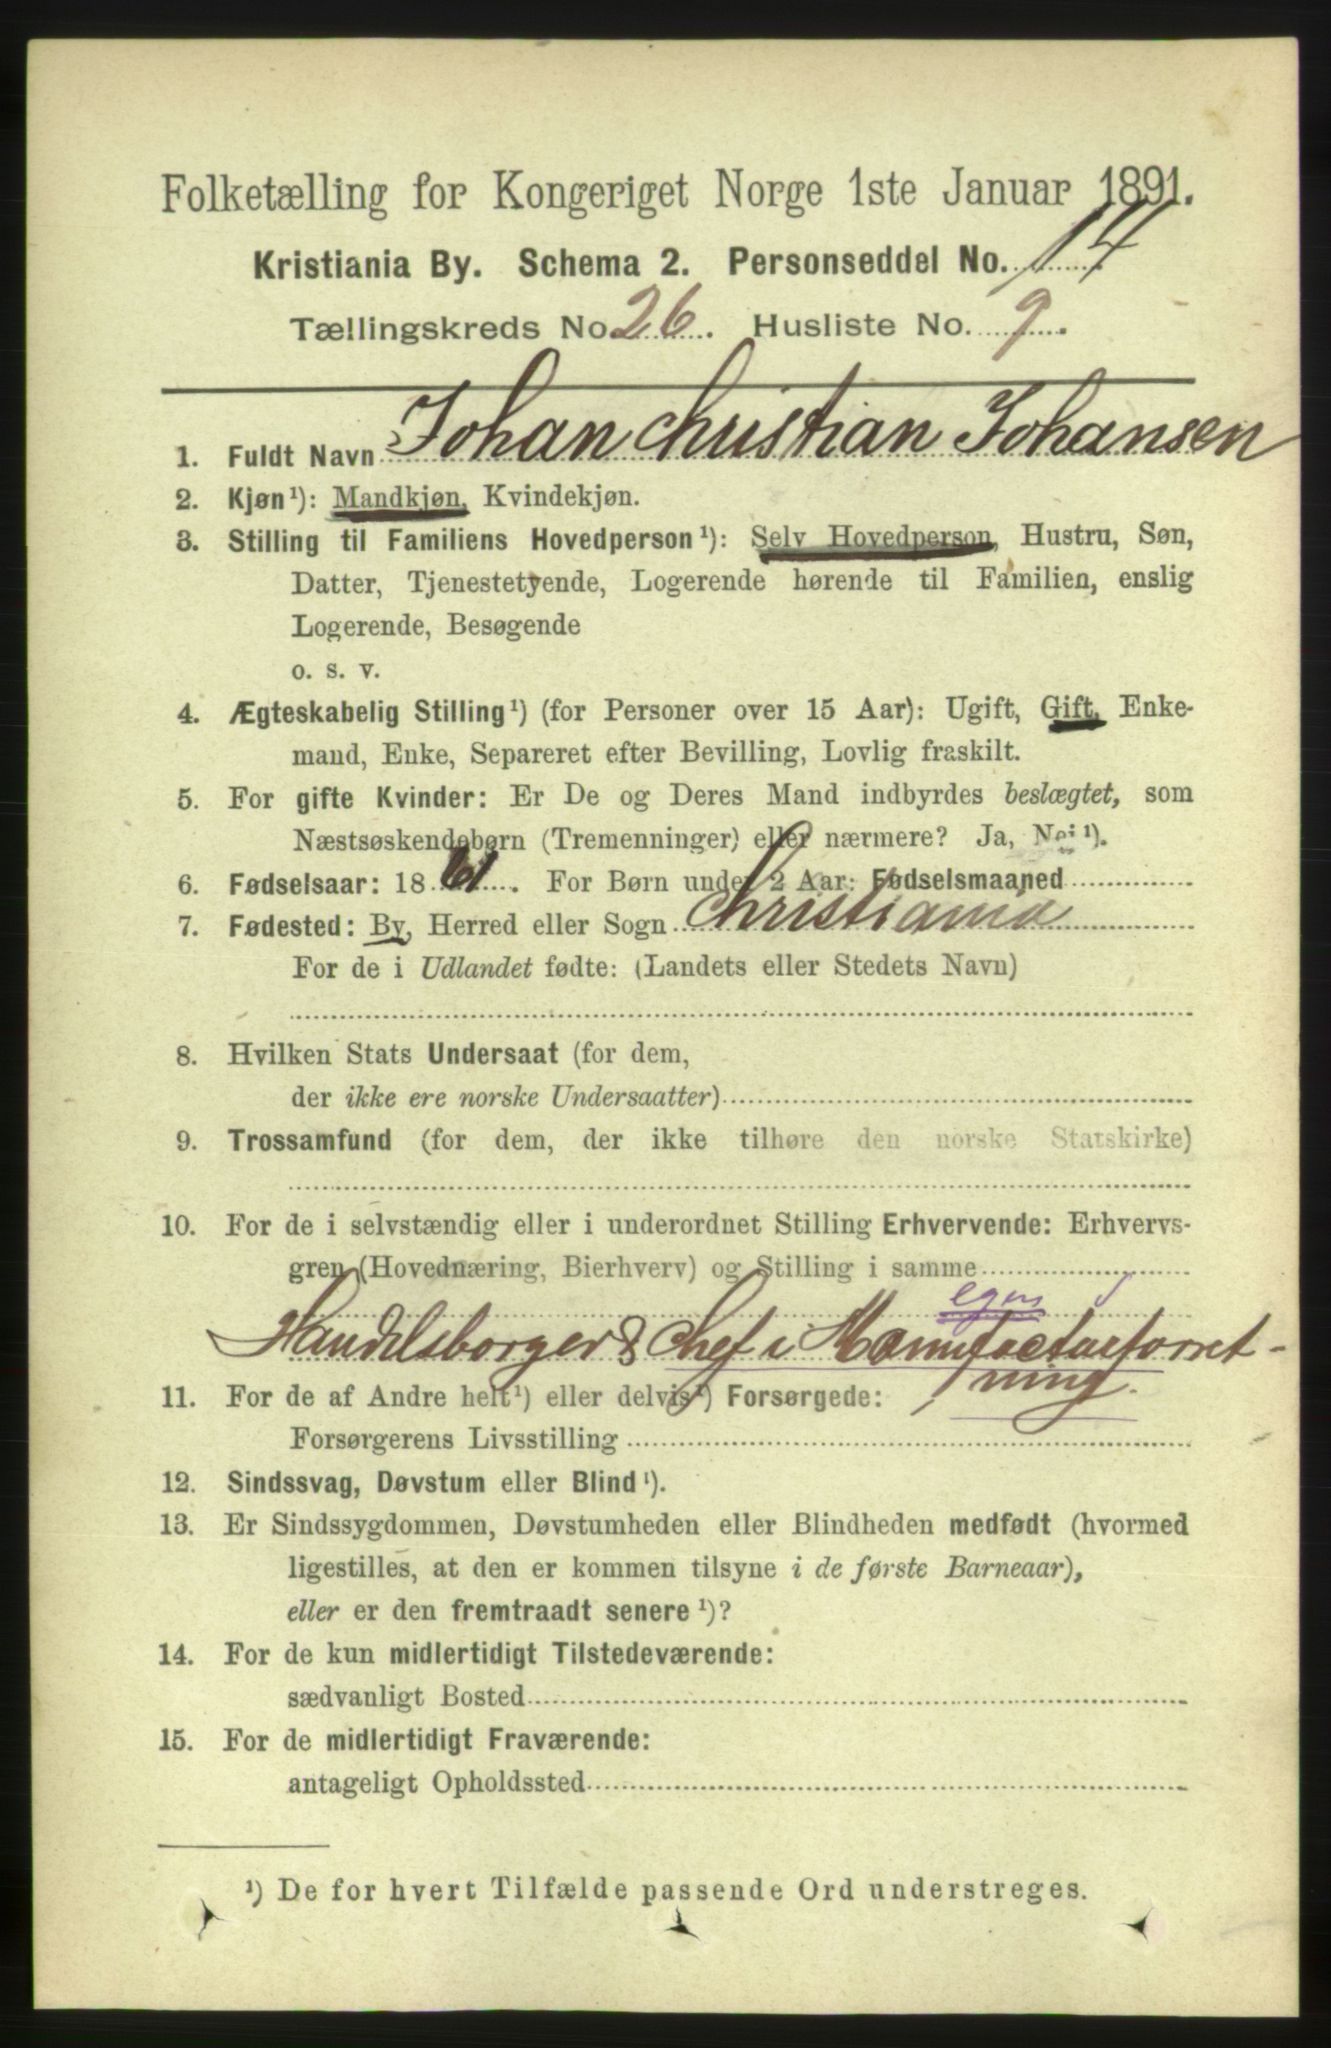 Folketælling for Kongeriget Norge 1ste Januar 1891.
Kristiania By. Schema 2. Personseddel No. 14
Tællingskreds No. 26. Husliste No. 9.
1. Fuldt Navn Johan Christian Johansen
2. Kjøn¹): Mandkjøn, Kvindekjøn.
3. Stilling til Familiens Hovedperson¹): Selv Hovedperson, Hustru, Søn,
Datter, Tjenestetyende, Logerende hørende til Familien, enslig
Logerende, Besøgende
o. s. v.
4. Ægteskabelig Stilling¹) (for Personer over 15 Aar): Ugift, Gift, Enke-
mand, Enke, Separeret efter Bevilling, Lovlig fraskilt.
5. For gifte Kvinder: Er De og Deres Mand indbyrdes beslægtet, som
Næstsøskendebørn (Tremenninger) eller nærmere? Ja, Nei¹).
6. Fødselsaar: 1861. For Børn under 2 Aar: Fødselsmaaned
7. Fødested: By, Herred eller Sogn Christiania
For de i Udlandet fødte: (Landets eller Stedets Navn)
8. Hvilken Stats Undersaat (for dem,
der ikke ere norske Undersaatter)
9. Trossamfund (for dem, der ikke tilhøre den norske Statskirke)
10. For de i selvstændig eller i underordnet Stilling Erhvervende: Erhvervs-
gren (Hovednæring, Bierhverv) og Stilling i samme
egen
Handelsborger & Chef i Manufacturforret-
ning.
11. For de af Andre helt¹) eller delvis¹) Forsørgede:
Forsørgerens Livsstilling
12. Sindssvag, Døvstum eller Blind¹).
13. Er Sindssygdommen, Døvstumheden eller Blindheden medfødt (hvormed
ligestilles, at den er kommen tilsyne i de første Barneaar),
eller er den fremtraadt senere¹)?
14. For de kun midlertidigt Tilstedeværende:
sædvanligt Bosted
15. For de midlertidigt Fraværende:
antageligt Opholdssted
¹) De for hvert Tilfælde passende Ord understreges.